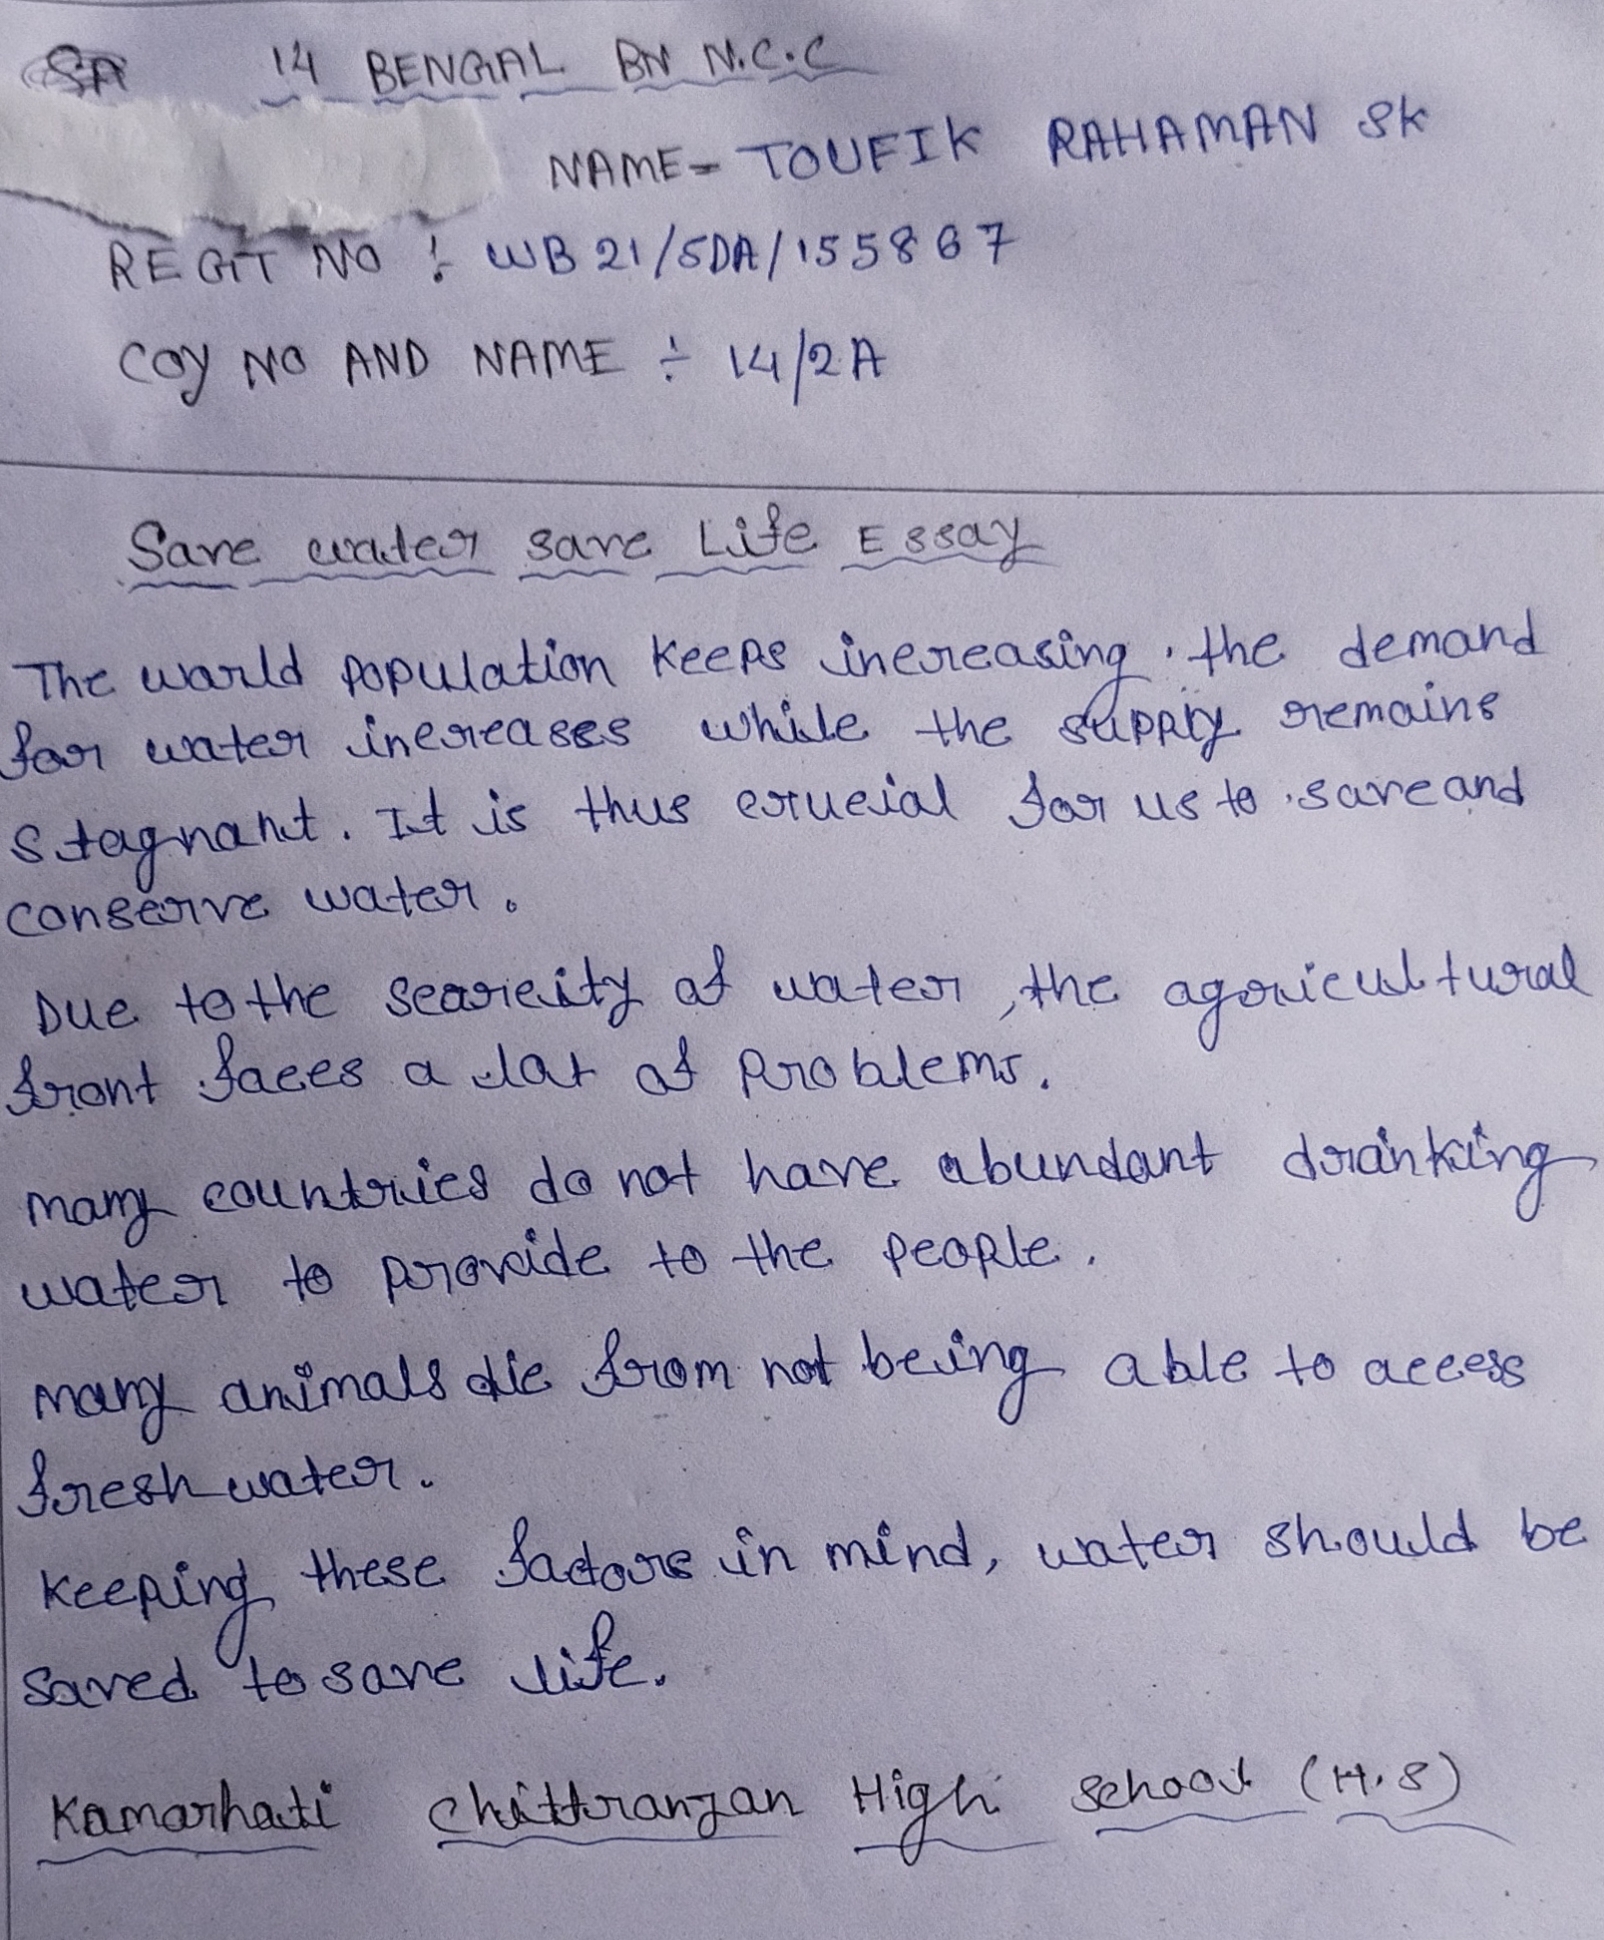 SA 14 BENGAL BN N.C.C
NAME- TOUFIK RAHAMAN SK
REGIT NO : WB 21/SDA/155867
COY NO AND NAME ÷ 14/2A
Save water save Life Essay
The world population keeps increasing. the demand
for water increases while the supply remains
stagnant. It is thus crucial for us to save and
conserve water.
Due to the scarcity of water, the agricultural
front faces a lot of problems.
many countries do not have abundant drinking
water to provide to the people.
many animals die from not being able to access
fresh water.
keeping these factors in mind, water should be
saved to save life.
Kamarhati Chittranjan High school (H.S)